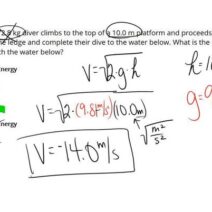 2.8 kg diver climbs to the top of a 10.0 m platform and proceeds
he ledge and complete their dive to the water below. What is the
h the water below?
nergy
V=√2·g·h
h=1
V=√2·(9.8m/s²)(10.0m)
g=9
nergy
√m²/s²
V=-14.0 m/s